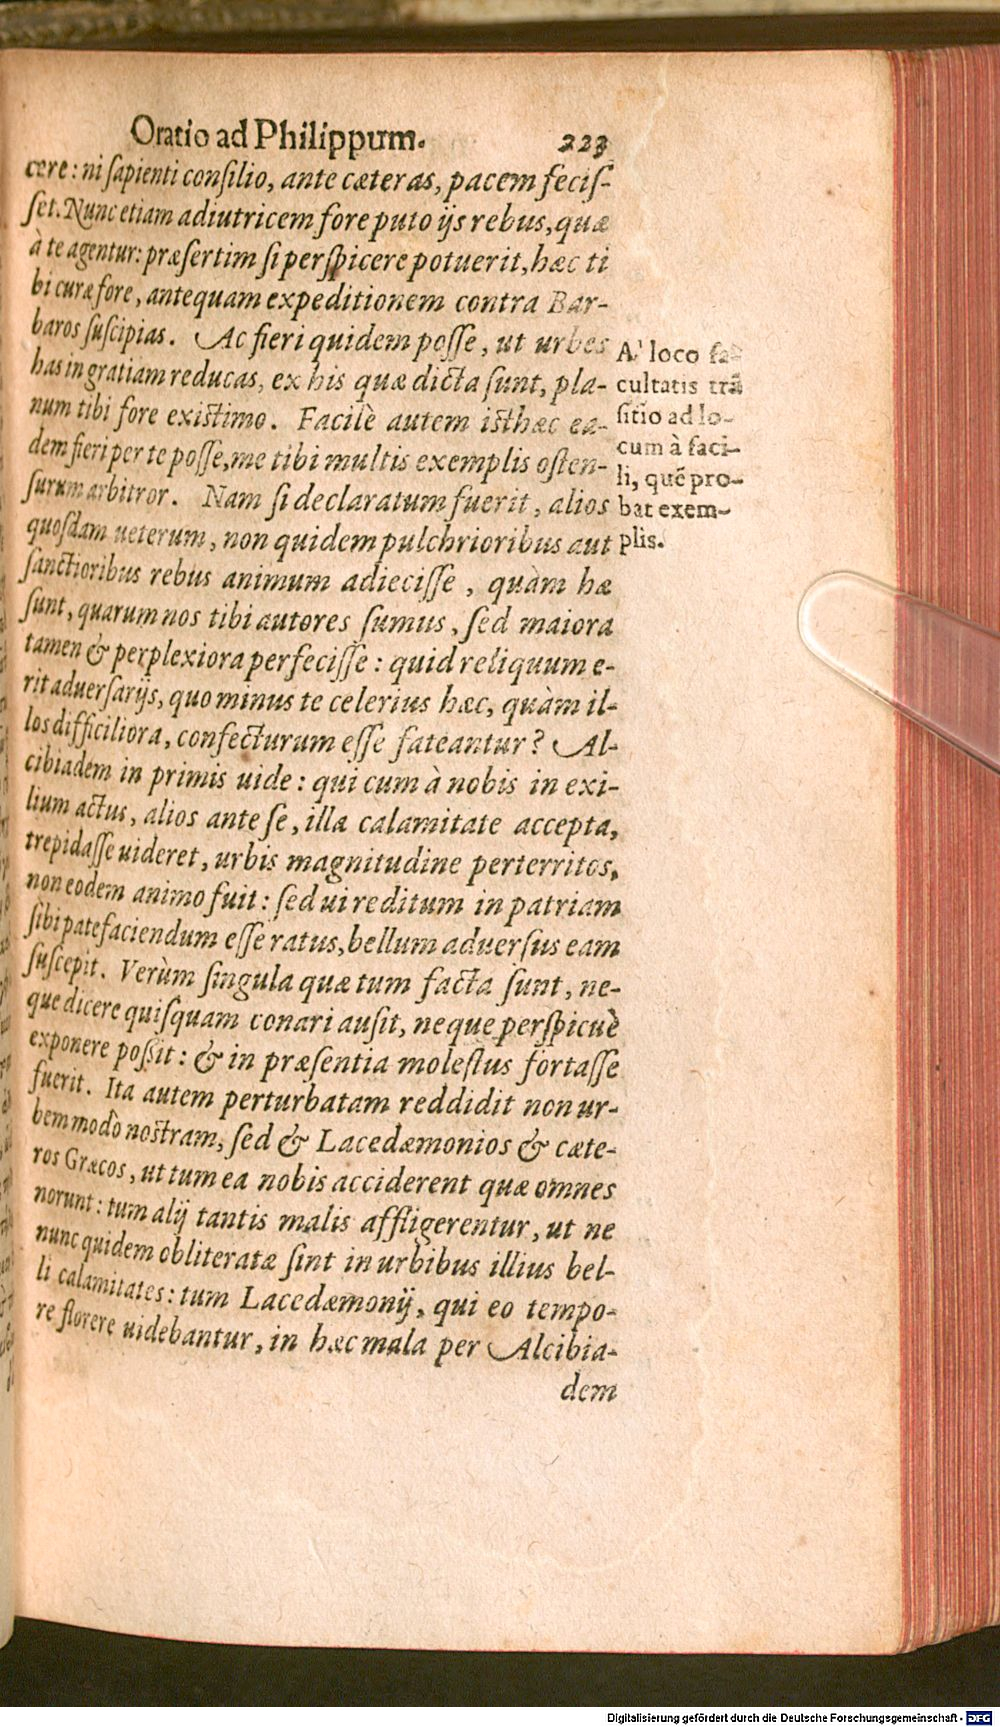 Oratio ad Philippum. 223
cere: ni sapienti consilio, ante cæteras, pacem fecis-
set. Nunc etiam adiutricem fore puto ijs rebus, quæ
à te agentur: præsertim si perspicere potuerit, hæc ti
bi curæ fore, antequam expeditionem contra Bar-
baros suscipias. Ac fieri quidem posse, ut urbes
has in gratiam reducas, ex his quæ dicta sunt, pla-
num tibi fore existimo. Facilè autem isthæc ea-
dem fieri per te posse, me tibi multis exemplis osten-
surum arbitror. Nam si declaratum fuerit, alios
quosdam ueterum, non quidem pulchrioribus aut
sanctioribus rebus animum adiecisse, quàm hæ
sunt, quarum nos tibi autores sumus, sed maiora
tamen & perplexiora perfecisse: quid reliquum e-
rit aduersarijs, quo minus te celerius hæc, quàm il-
los difficiliora, confecturum esse fateantur? Al-
cibiadem in primis uide: qui cum à nobis in exi-
lium actus, alios ante se, illa calamitate accepta,
trepidasse uideret, urbis magnitudine perterritos,
non eodem animo fuit: sed ui reditum in patriam
sibi patefaciendum esse ratus, bellum aduersus eam
suscepit. Verùm singula quæ tum facta sunt, ne-
que dicere quisquam conari ausit, neque perspicuè
exponere possit: & in præsentia molestus fortasse
fuerit. Ita autem perturbatam reddidit non ur-
bem modò nostram, sed & Lacedæmonios & cæte-
ros Græcos, ut tum ea nobis acciderent quæ omnes
norunt: tum alij tantis malis affligerentur, ut ne
nunc quidem obliteratæ sint in urbibus illius bel-
li calamitates: tum Lacedæmonij, qui eo tempo-
re florere uidebantur, in hæc mala per Alcibia-
dem
A' loco fa-
cultatis trã
sitio ad lo-
cum à faci-
li, quẽ pro-
bat exem-
plis.
Digitalisierung gefördert durch die Deutsche Forschungsgemeinschaft - DFG